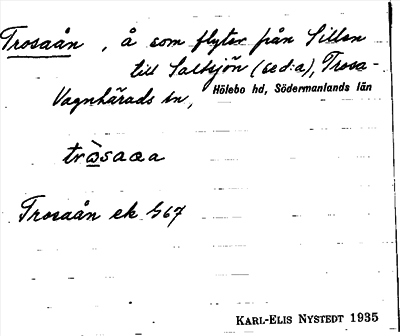 Trosaån, å som flyter från Sillen
till Saltsjön (se d:a), Trosa-
Vagnhärads sn, Hölebo hd, Södermanlands län
tròsaaa
Trosaån ek 567
KARL-ELIS NYSTEDT 1935